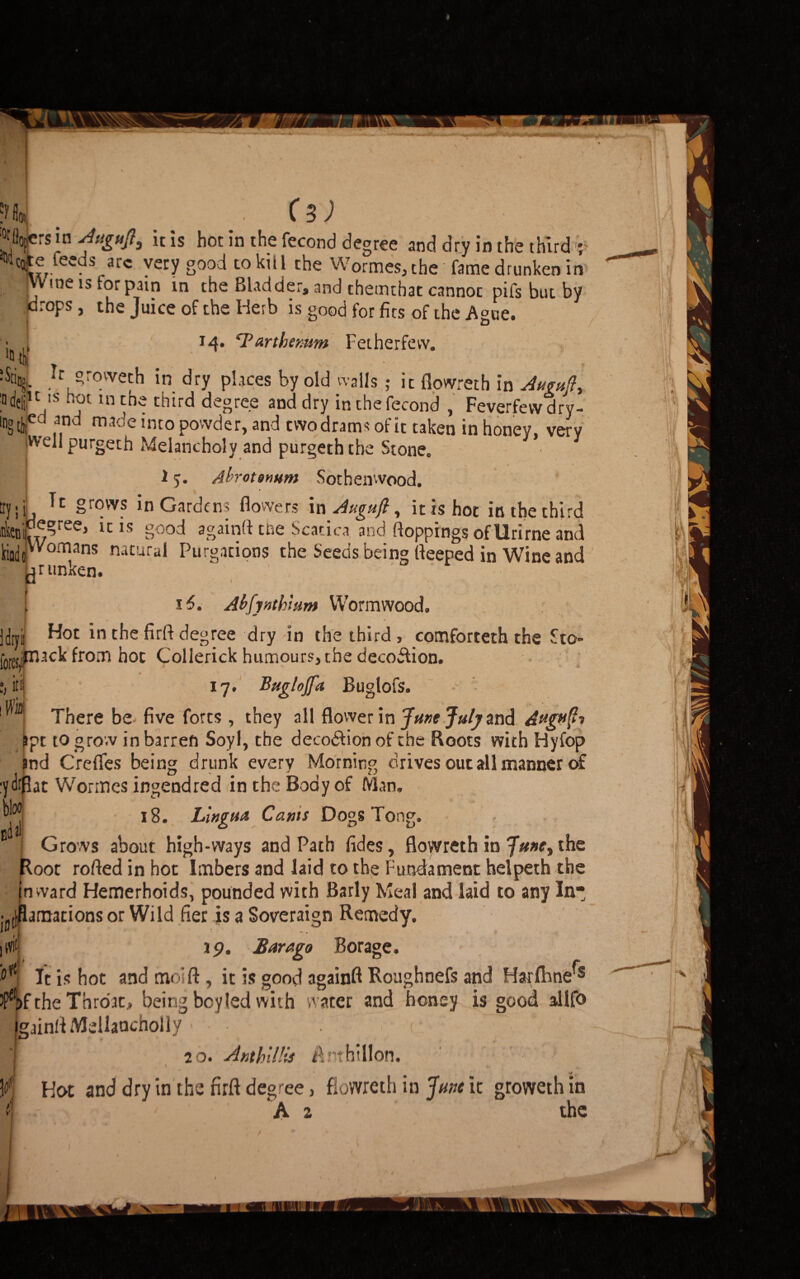 (3)
ers in Auguſt, it is hot in the ſecond degree and dry in the third ;
te ſeeds are very good to kill the Wormes, the ſame drunken in
Wine is for pain in the Bladder, and them that cannot piſs but by
drops, the Juice of the Herb is good for fits of the Ague.
14. Parthenum Fetherfew.
It groweth in dry places by old walls ; it flowreth in Auguſt,
it is hot in the third degree and dry in the ſecond , Feverfew dry-
ed and made into powder, and two drams of it taken in honey, very
well purgeth Melancholy and purgeth the Stone.
15. Abrotonum Sothenwood.
It grows in Gardens flowers in Auguſt, it is hot in the third
degree, it is good againſt the Scatica and ſtoppings of Urirne and
Womans natural Purgations the Seeds being ſteeped in Wine and
drunken.
16. Abſynthium Wormwood.
Hot in the firſt degree dry in the third, comforteth the Sto-
mack from hot Collerick humours, the decoction.
17. Bugloſſa Bugloſs.
There be five ſorts , they all flower in June July and Auguſt,
apt to grow in barren Soyl, the decoction of the Roots with Hyſop
and Creſſes being drunk every Morning drives out all manner of
flat Wormes ingendred in the Body of Man.
18. Lingua Canis Dogs Tong.
Grows about high-ways and Path ſides, flowreth in June, the
Root roſted in hot Imbers and laid to the Fundament helpeth the
inward Hemerhoids, pounded with Barly Meal and laid to any In-
flamations or Wild fier is a Soveraign Remedy.
19. Barago Borage.
It is hot and moiſt , it is good againſt Roughneſs and Harſhneſs
of the Throat, being boyled with water and honey is good allſo
againſt Mellancholly
20. Anthillis Anthillon.
Hot and dry in the firſt degree, flowreth in June it groweth in
A 2 the